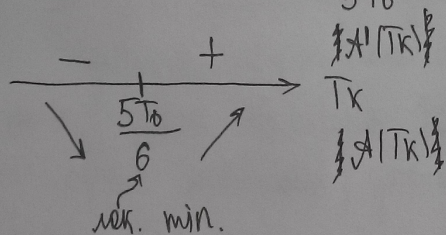 5T₀
{A'(Tк)}
− +
Tк
5T₀
6
{A(Tк)}
лок. min.